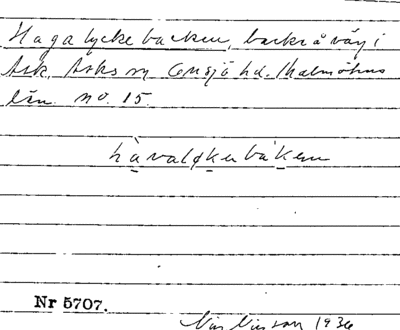 Hagalyckebacken, backe å väg i
Ask, Asks sn Onsjö hd. Malmöhus
län. no. 15.
hàvaløkebàken
Nr 5707.
Nils Nilsson 1936